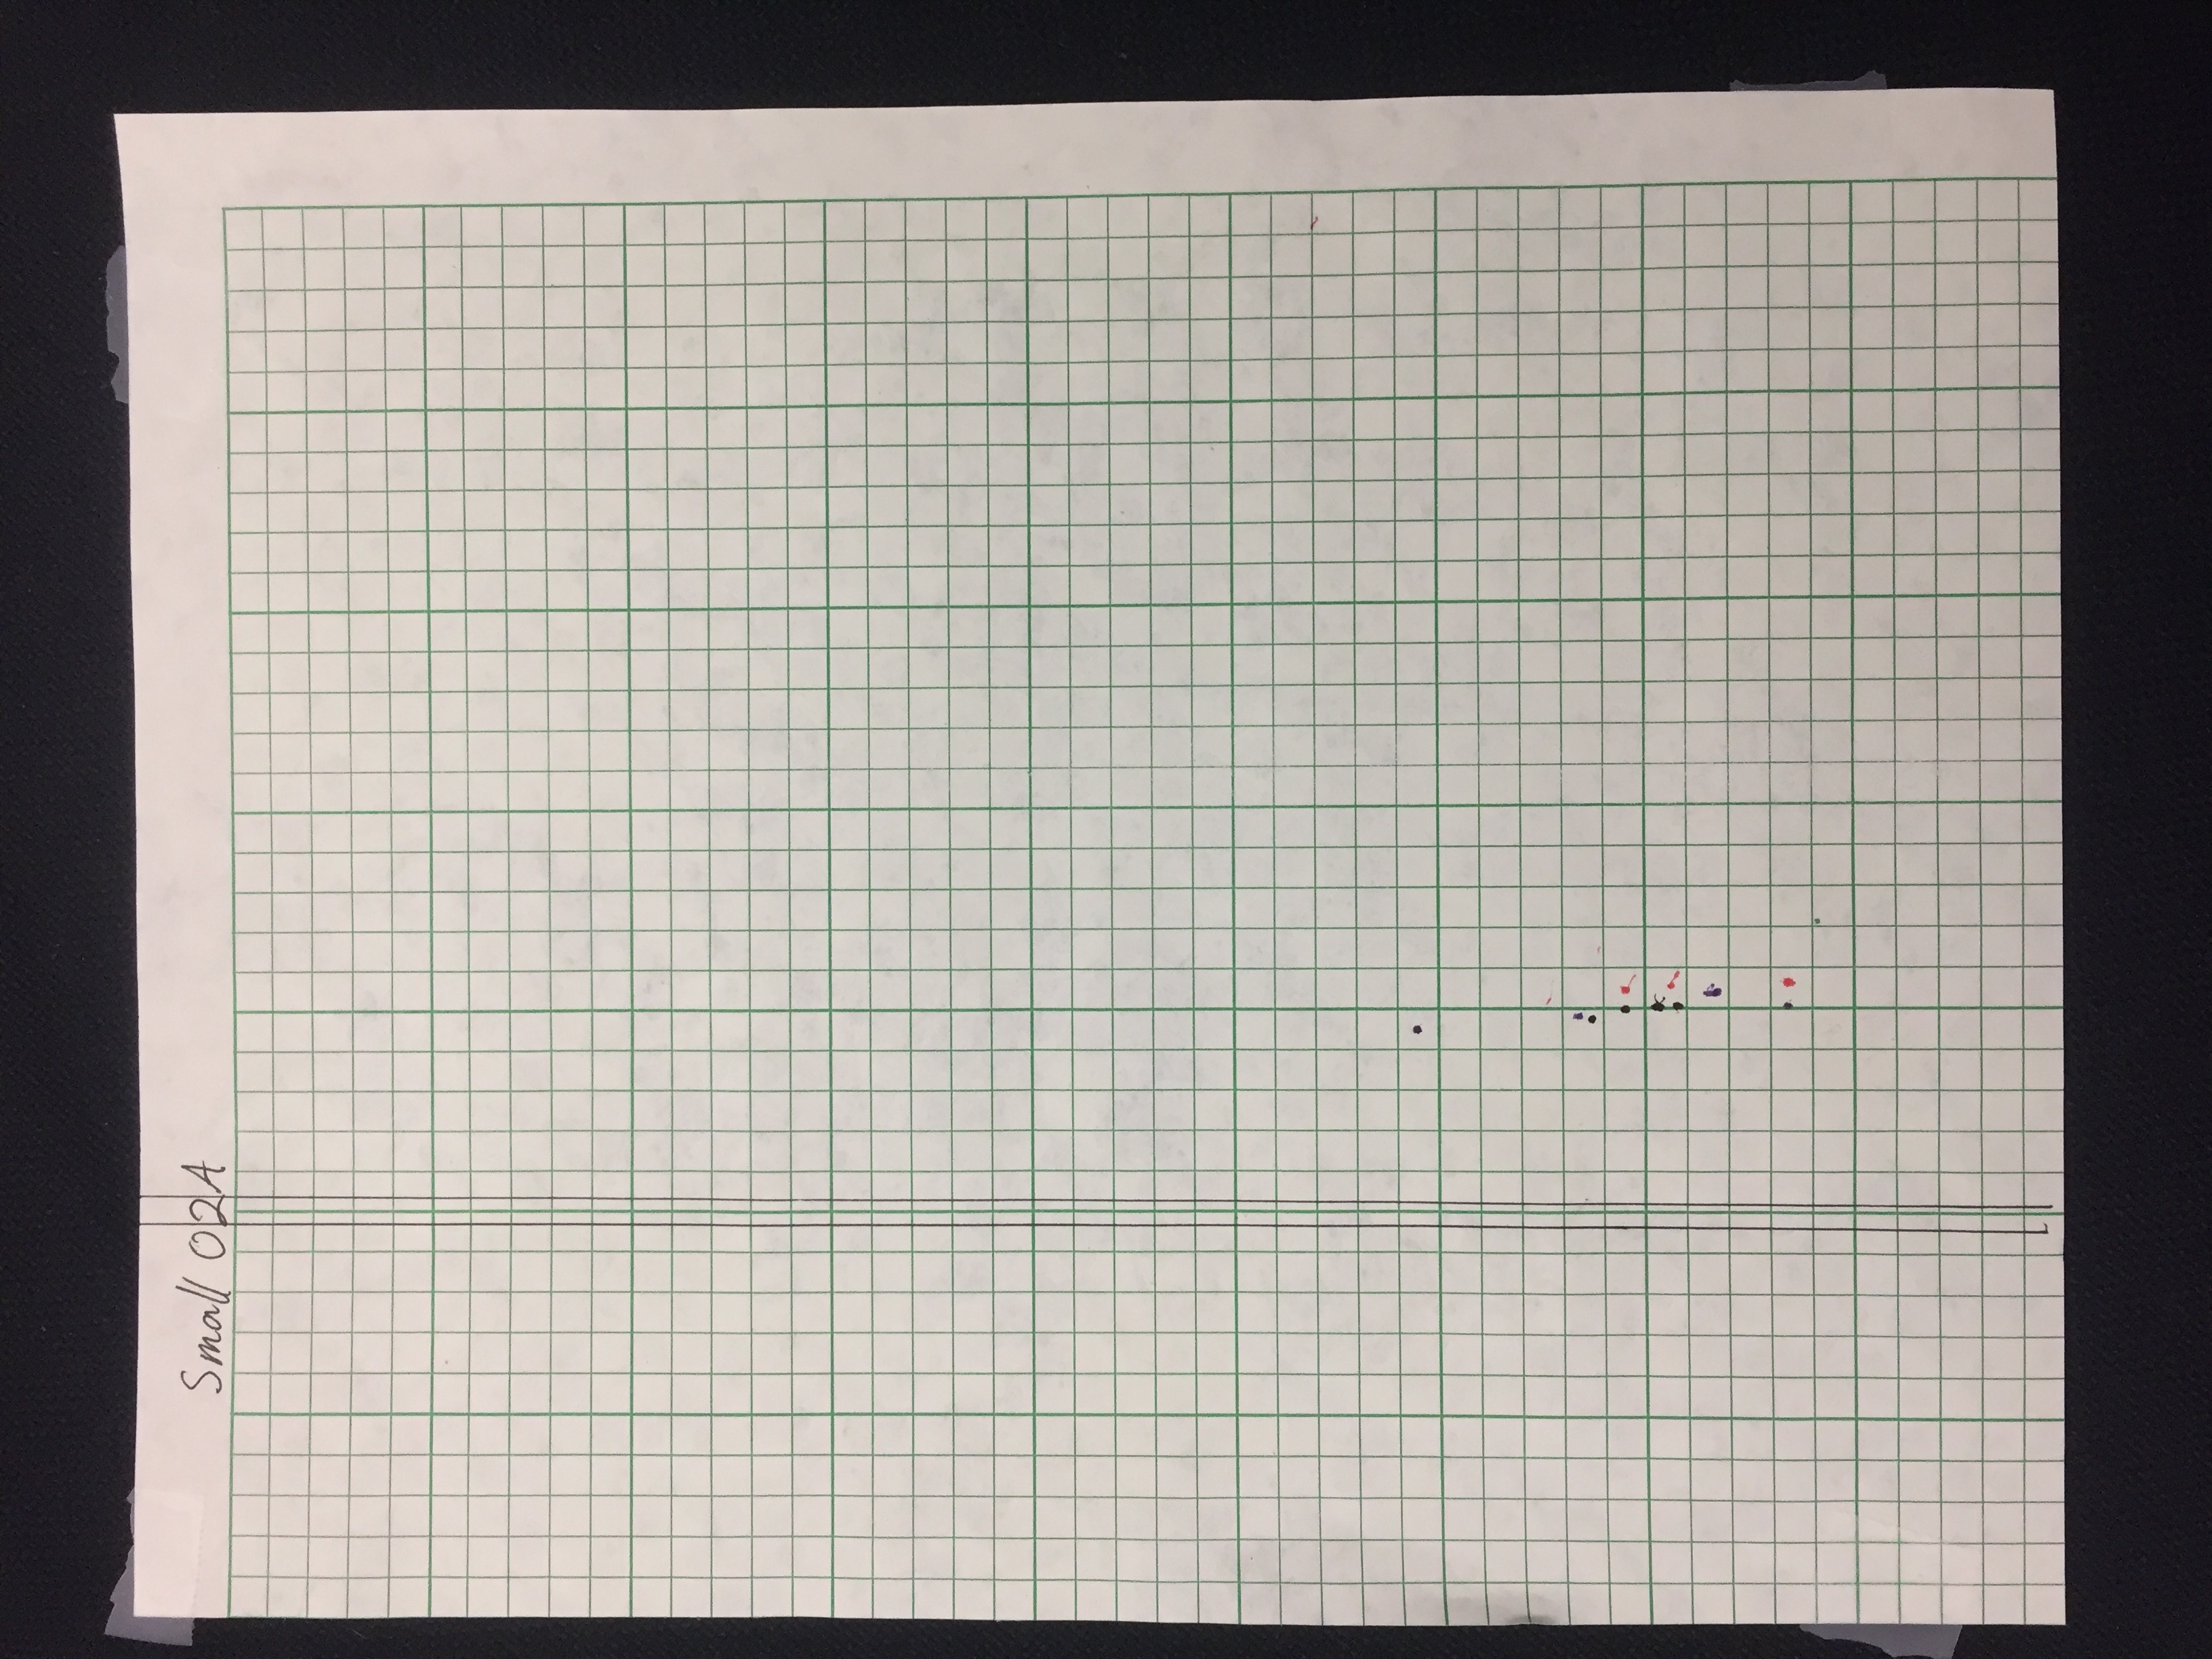 Small 02A